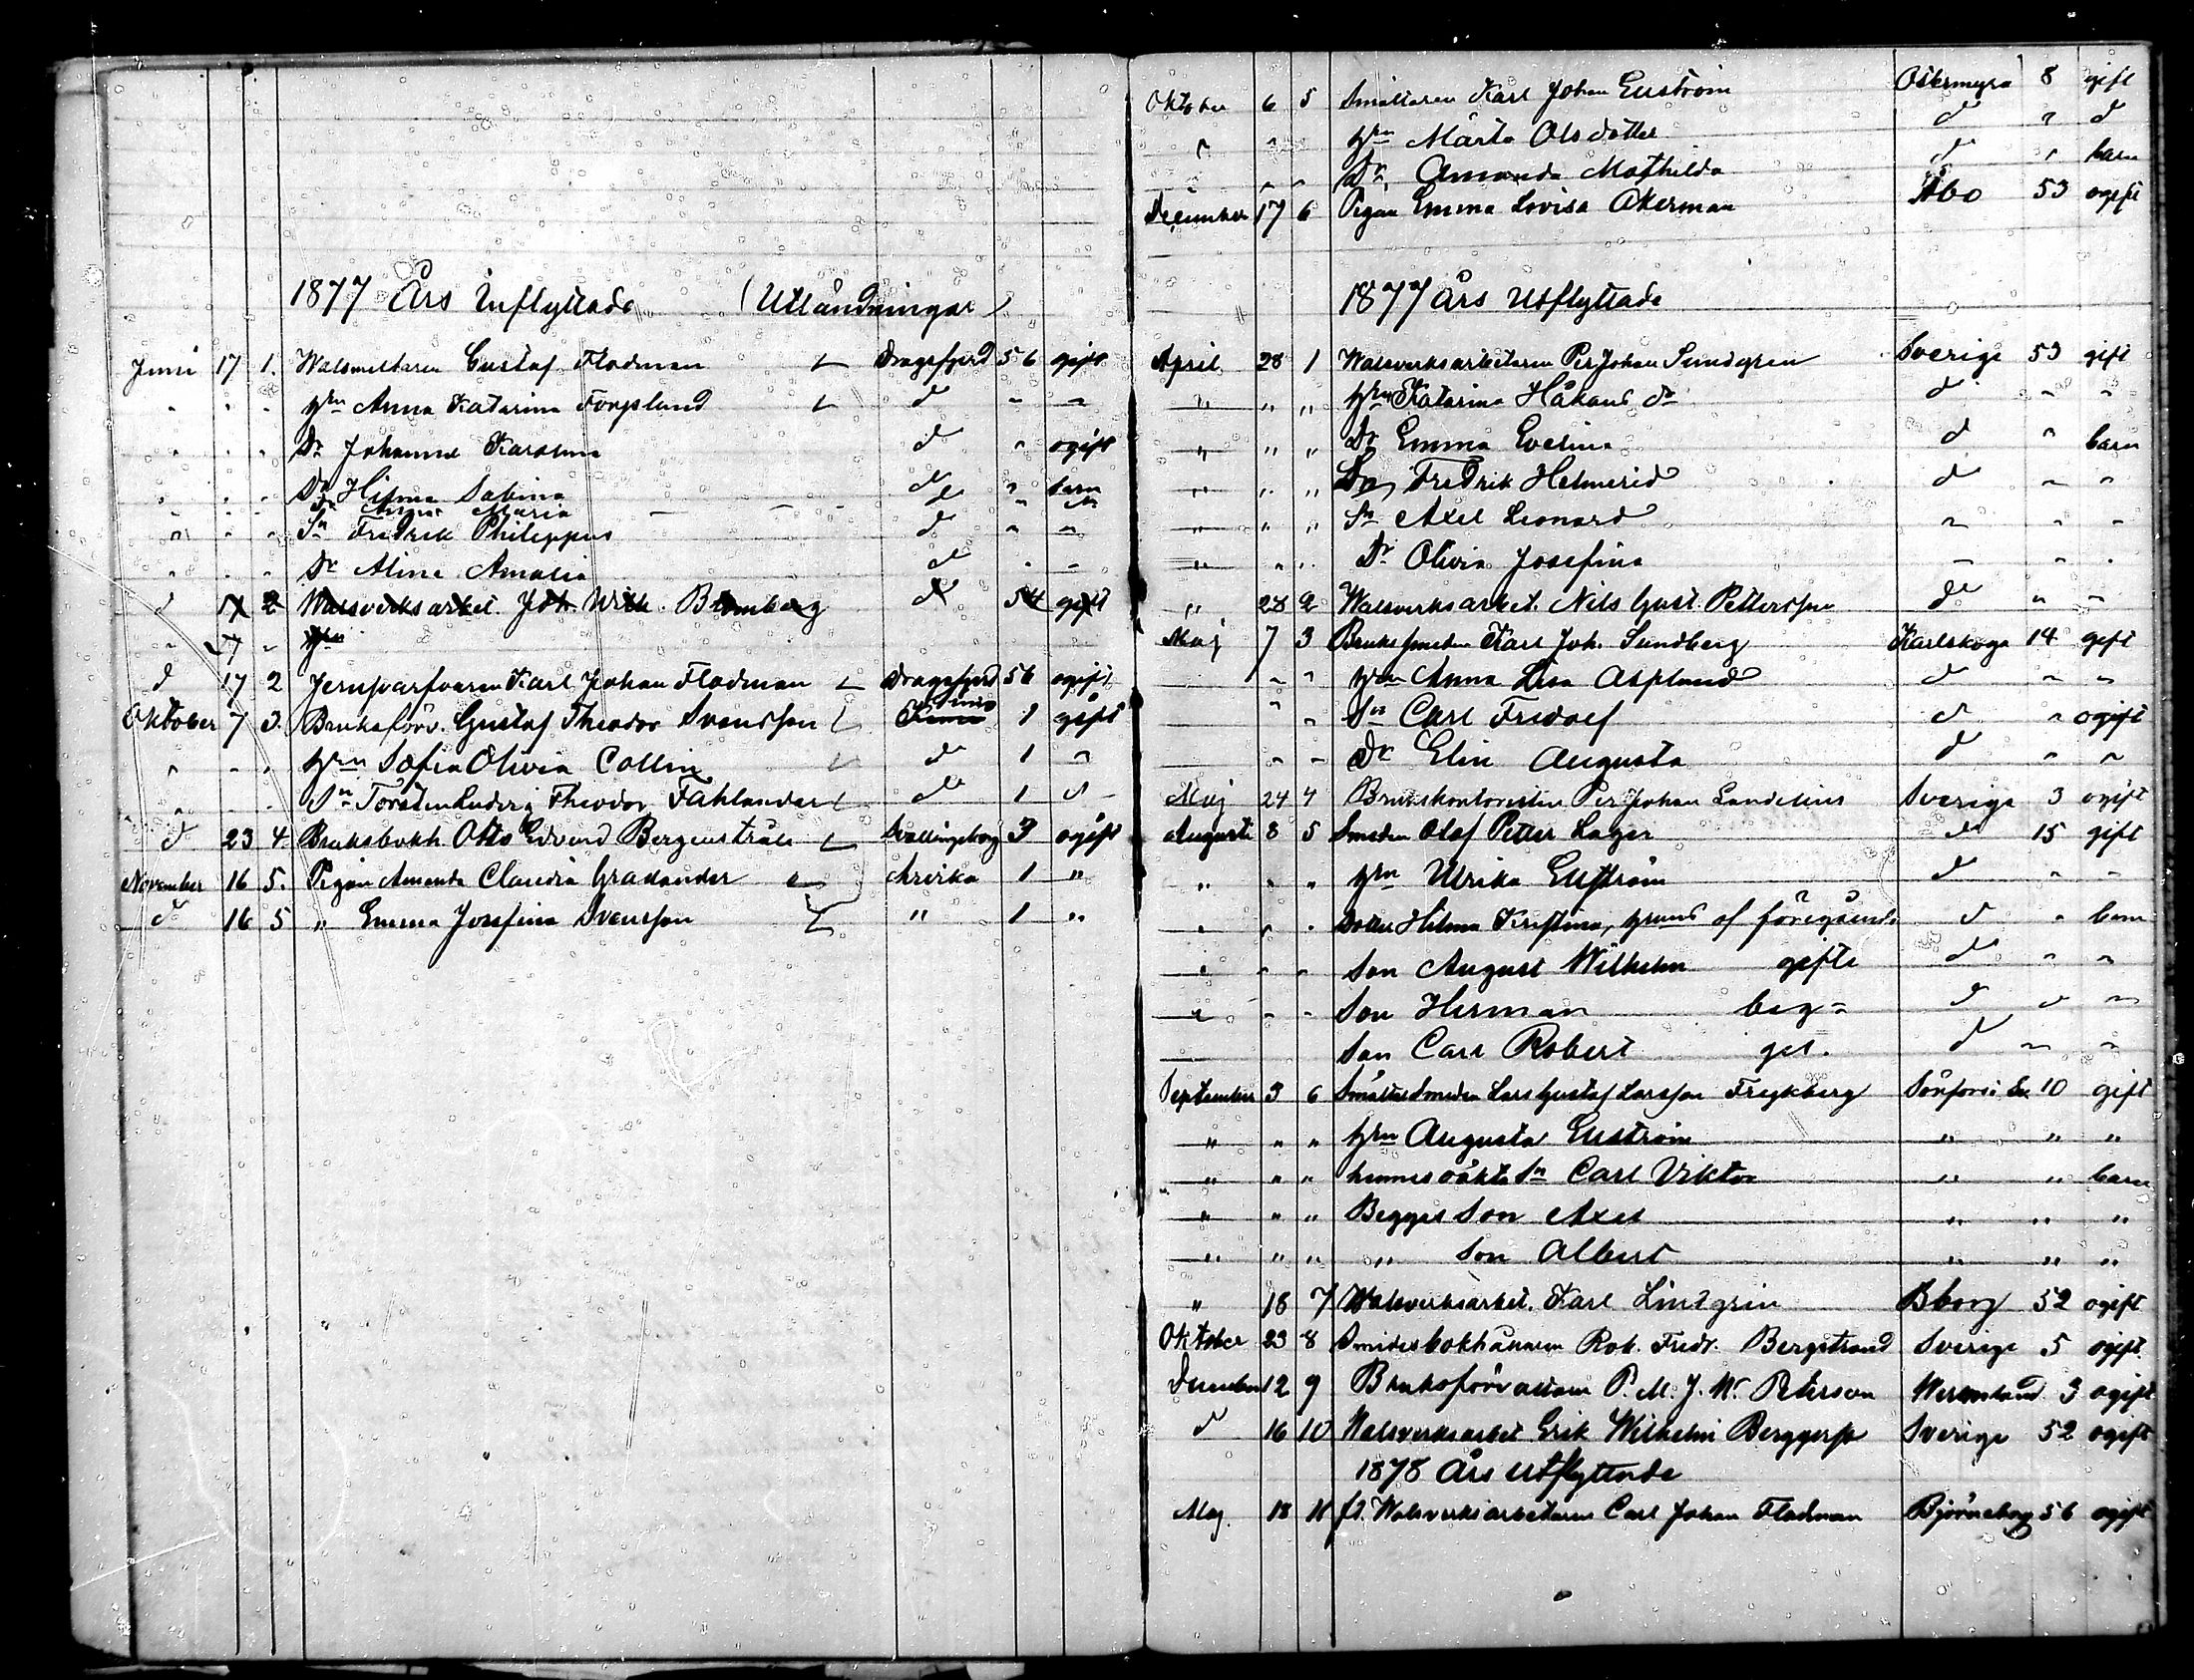 1877 Års Inflyttade (Utländningar)
Juni 17 1. Walsmeltaren Gustaf Flodman Dragsfjerd 56 gift
" " " Hn Anna Katarina Forsslund d " "
" " " Dr Johanna Karolina d " ogift
" " " Dr Hilma Sabina d " barn
" " " Dr Anna Maria d " "
" " " Sn Fredrik Philippus d " "
" " " Dr Alina Amalia d " "
d 17 2 Walsverksarbet. Joh. Wilh. Blomberg d 54 gift
" 17 " Hn
d 17 2 Jernsvarfvaren Karl Johan Flodman Dragsfjerd 56 ogift
Oktober 7 3. Bruksförv. Gustaf Theodor Svensson 1 gift
" " " Hn Sofia Olivia Collin d 1 "
" " " Sn Torsten Ludvig Theodor Fahlander d 1 "
d 23 4 Bruksbokh. Otto Edvard Bergenstråle 3 ogift
November 16 5. Pigan Amanda Claudia Gradander Arvika 1 "
d 16 5 " Emma Josefina Svensson " 1 "
Oktober 6 5 Smältaren Karl Johan Enström Östermyra 8 gift
" " Hn Märta Olsdotter d " d
" " " Dr Amanda Mathilda d " barn
December 17 6 Pigan Emma Lovisa Åkerman Åbo 53 ogift
1877 års Utflyttade
April 28 1 Walsverksarbetaren Per Johan Sundgren Sverige 53 gift
" " " Hn Katarina Håkans dr d " "
" " " Dr Emma Evelina d " barn
" " " Sn Fredrik Helmerid d " "
" " " Sn Axel Leonard " " "
" " " Dr Olivia Josefina " " "
" 28 2 Walsverksarbet. Nils Gust. Pettersson d " "
Maj 7 3 Brukssmeden Karl Joh. Sundberg Karlskoga 14 gift
" " Hn Anna Lisa Asplund d " "
" " Sn Carl Fridolf d " ogift
" " Dr Elin Augusta d " "
Maj 24 4 Brukskontoristen Per Johan Landelius Sverige 3 ogift
Augusti 8 5 Smeden Olof Petter Lager d 15 gift
" " " Hn Ulrika Enström d " "
" " " Dotter Hilma Kristina, hennes af föregående d " barn
" " " Son August Wilhelm gifte d " "
" " " Son Herman beg " d " "
Son Carl Robert d " "
September 3 6 Smältsmeden Lars Gustaf Larsson Frykberg 10 gift
" " " Hn Augusta Enström " " "
" " " hennes oäkta Sn Carl Viktor " " barn
" " " Begges Son Axel " " "
" " " " Son Albert " " "
" 18 7 Walsverksarbet. Karl Lindgren Bborg 52 ogift
Oktober 23 8 Smidesbokhållaren Rob. Fredr. Bergstrand Sverige 5 ogift
December 12 9 Bruksförvaltaren P. M. J. W. Peterson Wermland 3 ogift
d 16 10 Walsverksarbet Erik Wilhelm Sverige 52 ogift
1878 Års Utflyttade
Maj 18 11 fd. Walsverksarbetaren Carl Johan Flodman Björneborg 56 ogift